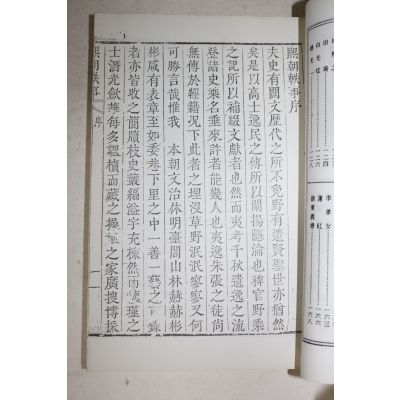 熙朝軼事序
夫史有闕文歷代之所不免野有遺賢聖世亦猶然
矣是以高士逸民之傳所以闡揚懸論也稗官野乘
之記所以補綴文獻者也然而夷考千秋遺逸之流
登諸史乘名垂來許者能幾人也夷逸朱張之徒尙
無傳於經籍况下此者之埋沒草野泯泯寥寥又何
可勝言哉惟我 本朝文治休明臺閣山林赫赫彬
彬咸有表章至如委巷下里之中一善一藝之可錄
者亦皆收之簡牘枝史叢編溢宇充棟然而懷瑾之
士潛光歛華每多韞櫝而藏之操之家廣搜博採
熙朝軼事 序
李孝女